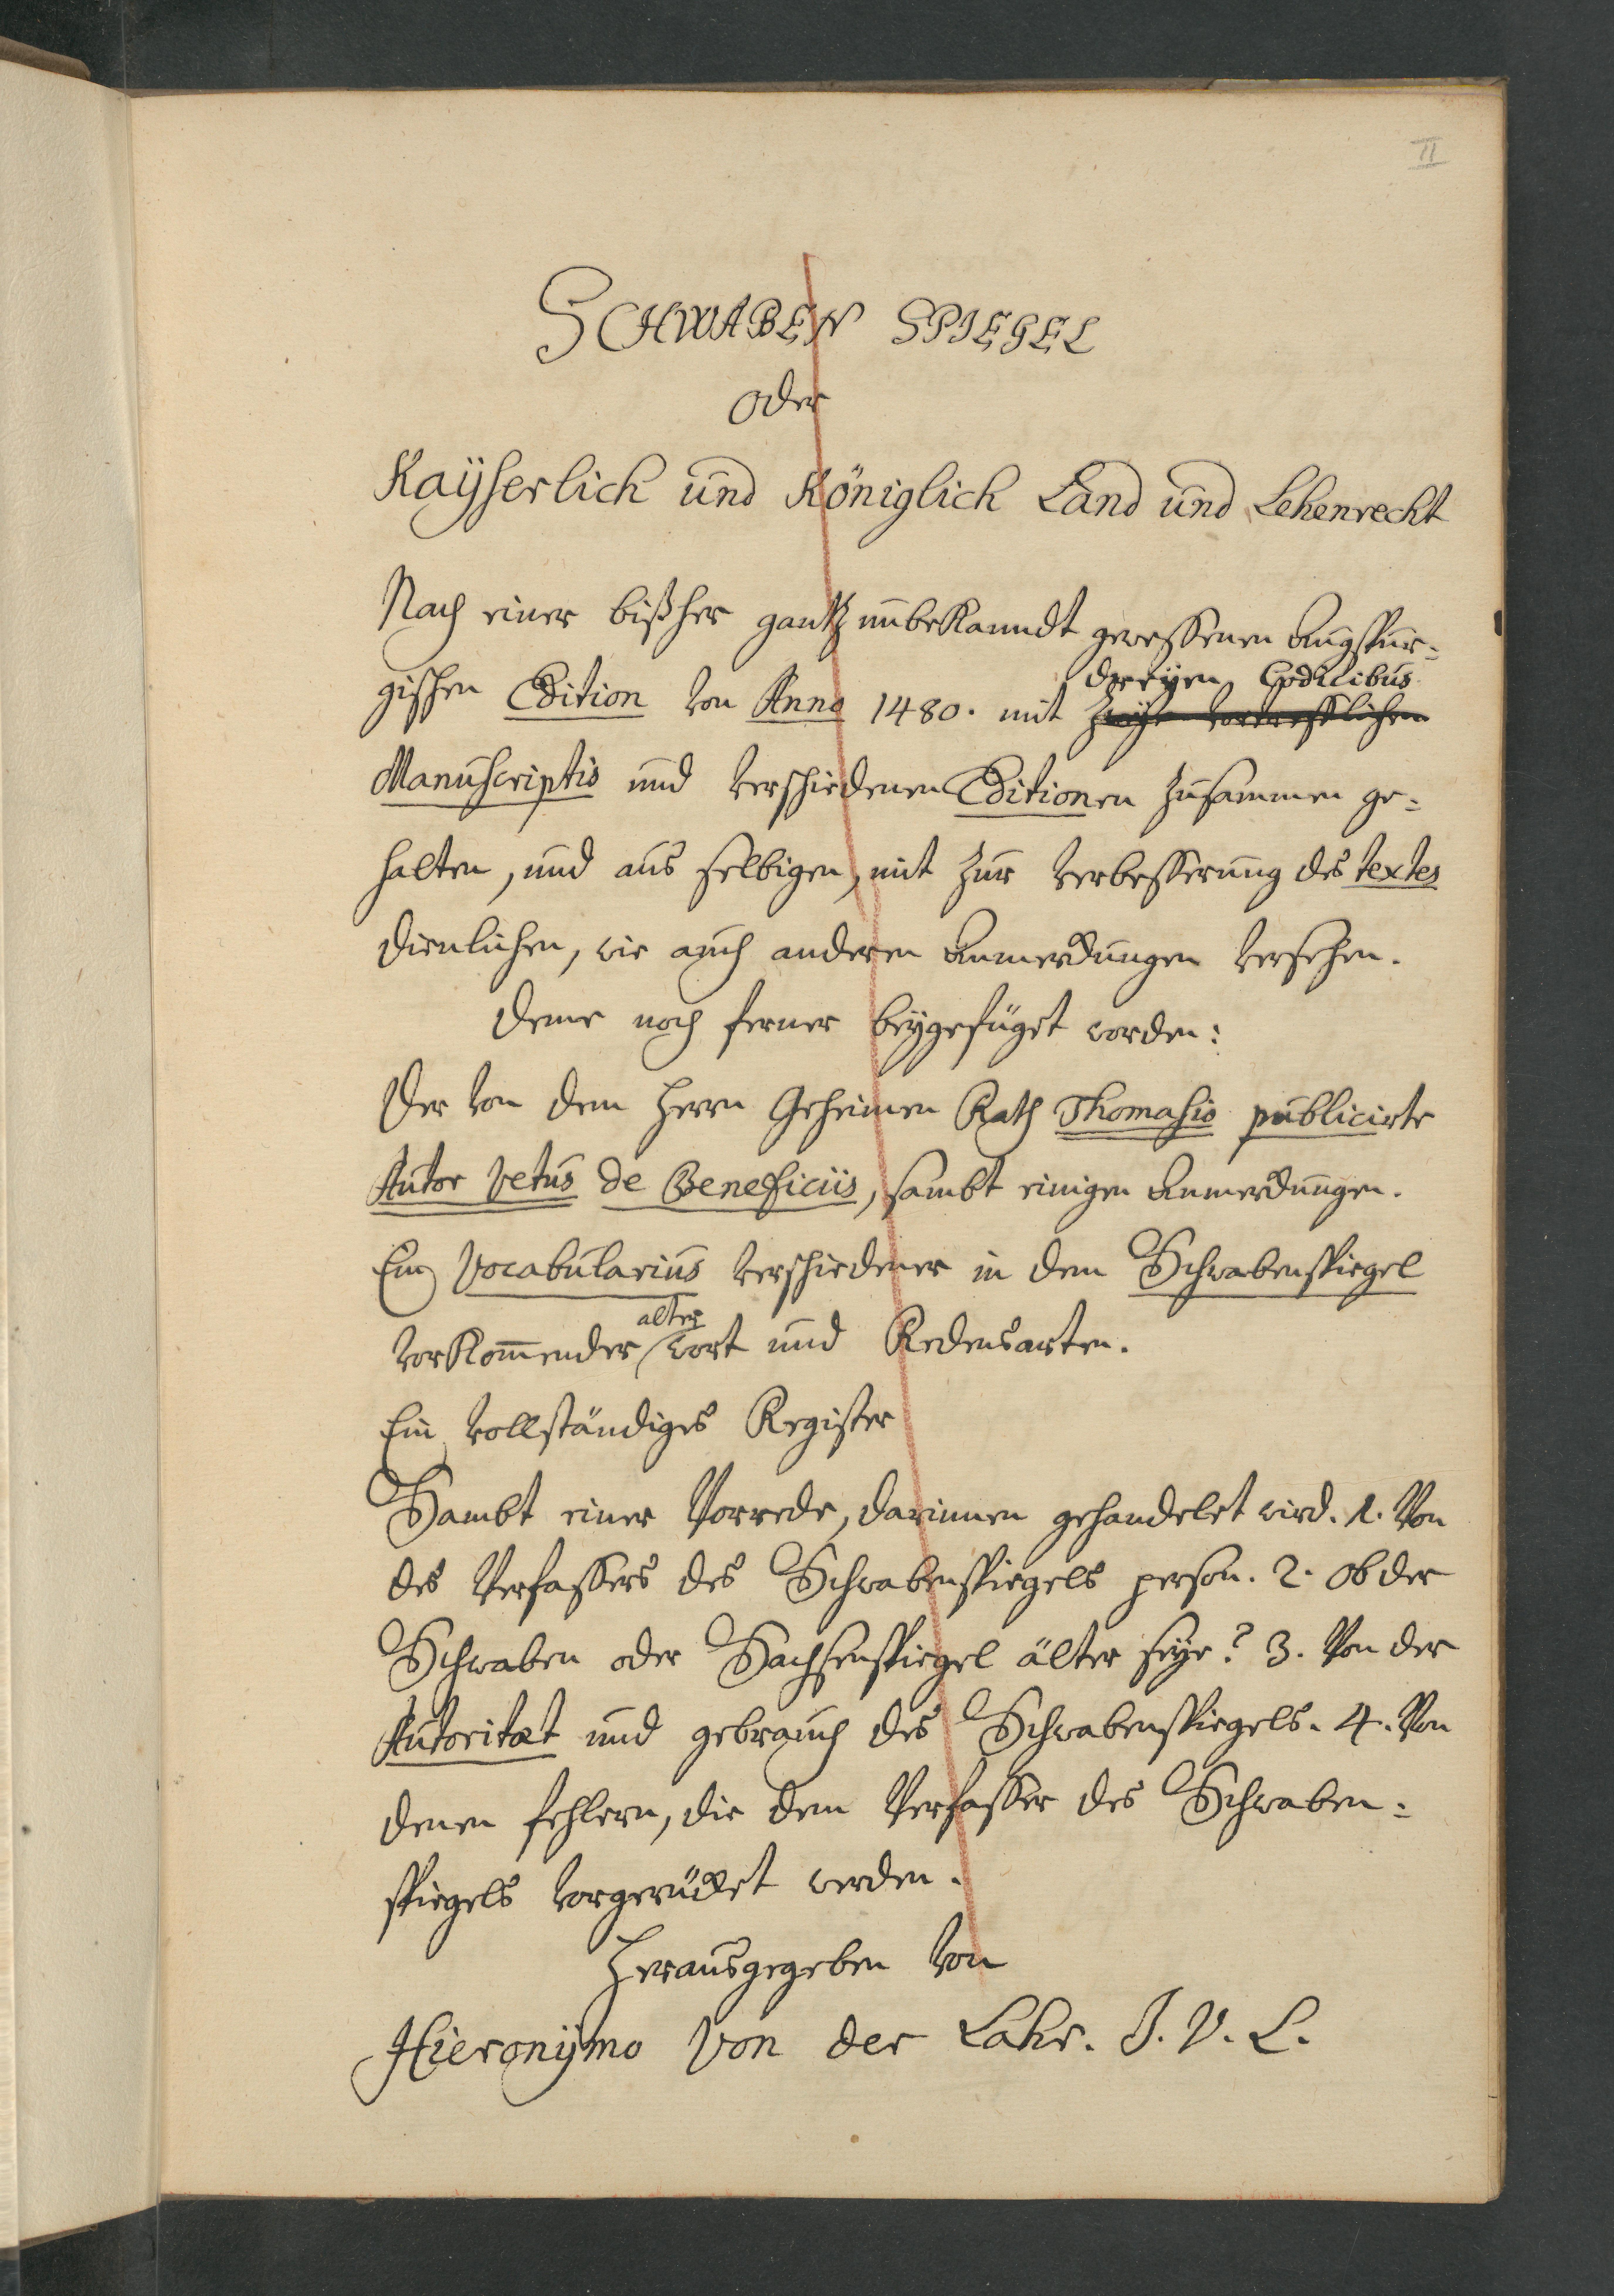 II
SCHWABEN SPIEGEL
oder
Kaÿserlich und Königlich Land und Lehenrecht
Nach einer bißher gantz unbekanndt gewessenen Augspur=
dreyen Codicibus
gischen Edition von Anno 1480. mit zweyen vortrefflichen
Manuscriptis und verschiedenen Editionen zusammen ge=
halten, und aus selbigen, mit zur verbesserung des textes
dienlichen, wie auch anderen Anmerckungen versehen.
Deme noch ferner beÿgefüget worden:
Der von dem Herrn Geheimen Rath Thomasio publicirte
Autor vetus de Beneficiis, sambt einigen Anmerckungen.
Ein Vocabularius verschiedener in dem Schwabenspiegel
alter
vorkom̅ender wort und Redensarten.
Ein vollständiges Register
Sambt einer Vorrede, darinnen gehandelet wird. 1. Von
des Verfassers des Schwabenspiegels person. 2. ob der
Schwaben oder Sachsenspiegel älter seÿe? 3. Von der
Autoritæt und gebrauch des Schwabenspiegels. 4. Von
denen fehlern, die dem Verfasser des Schwaben=
spiegels vorgerücket werden.
Herausgegeben von
Hieronÿmo von der Lahr. J. V. L.